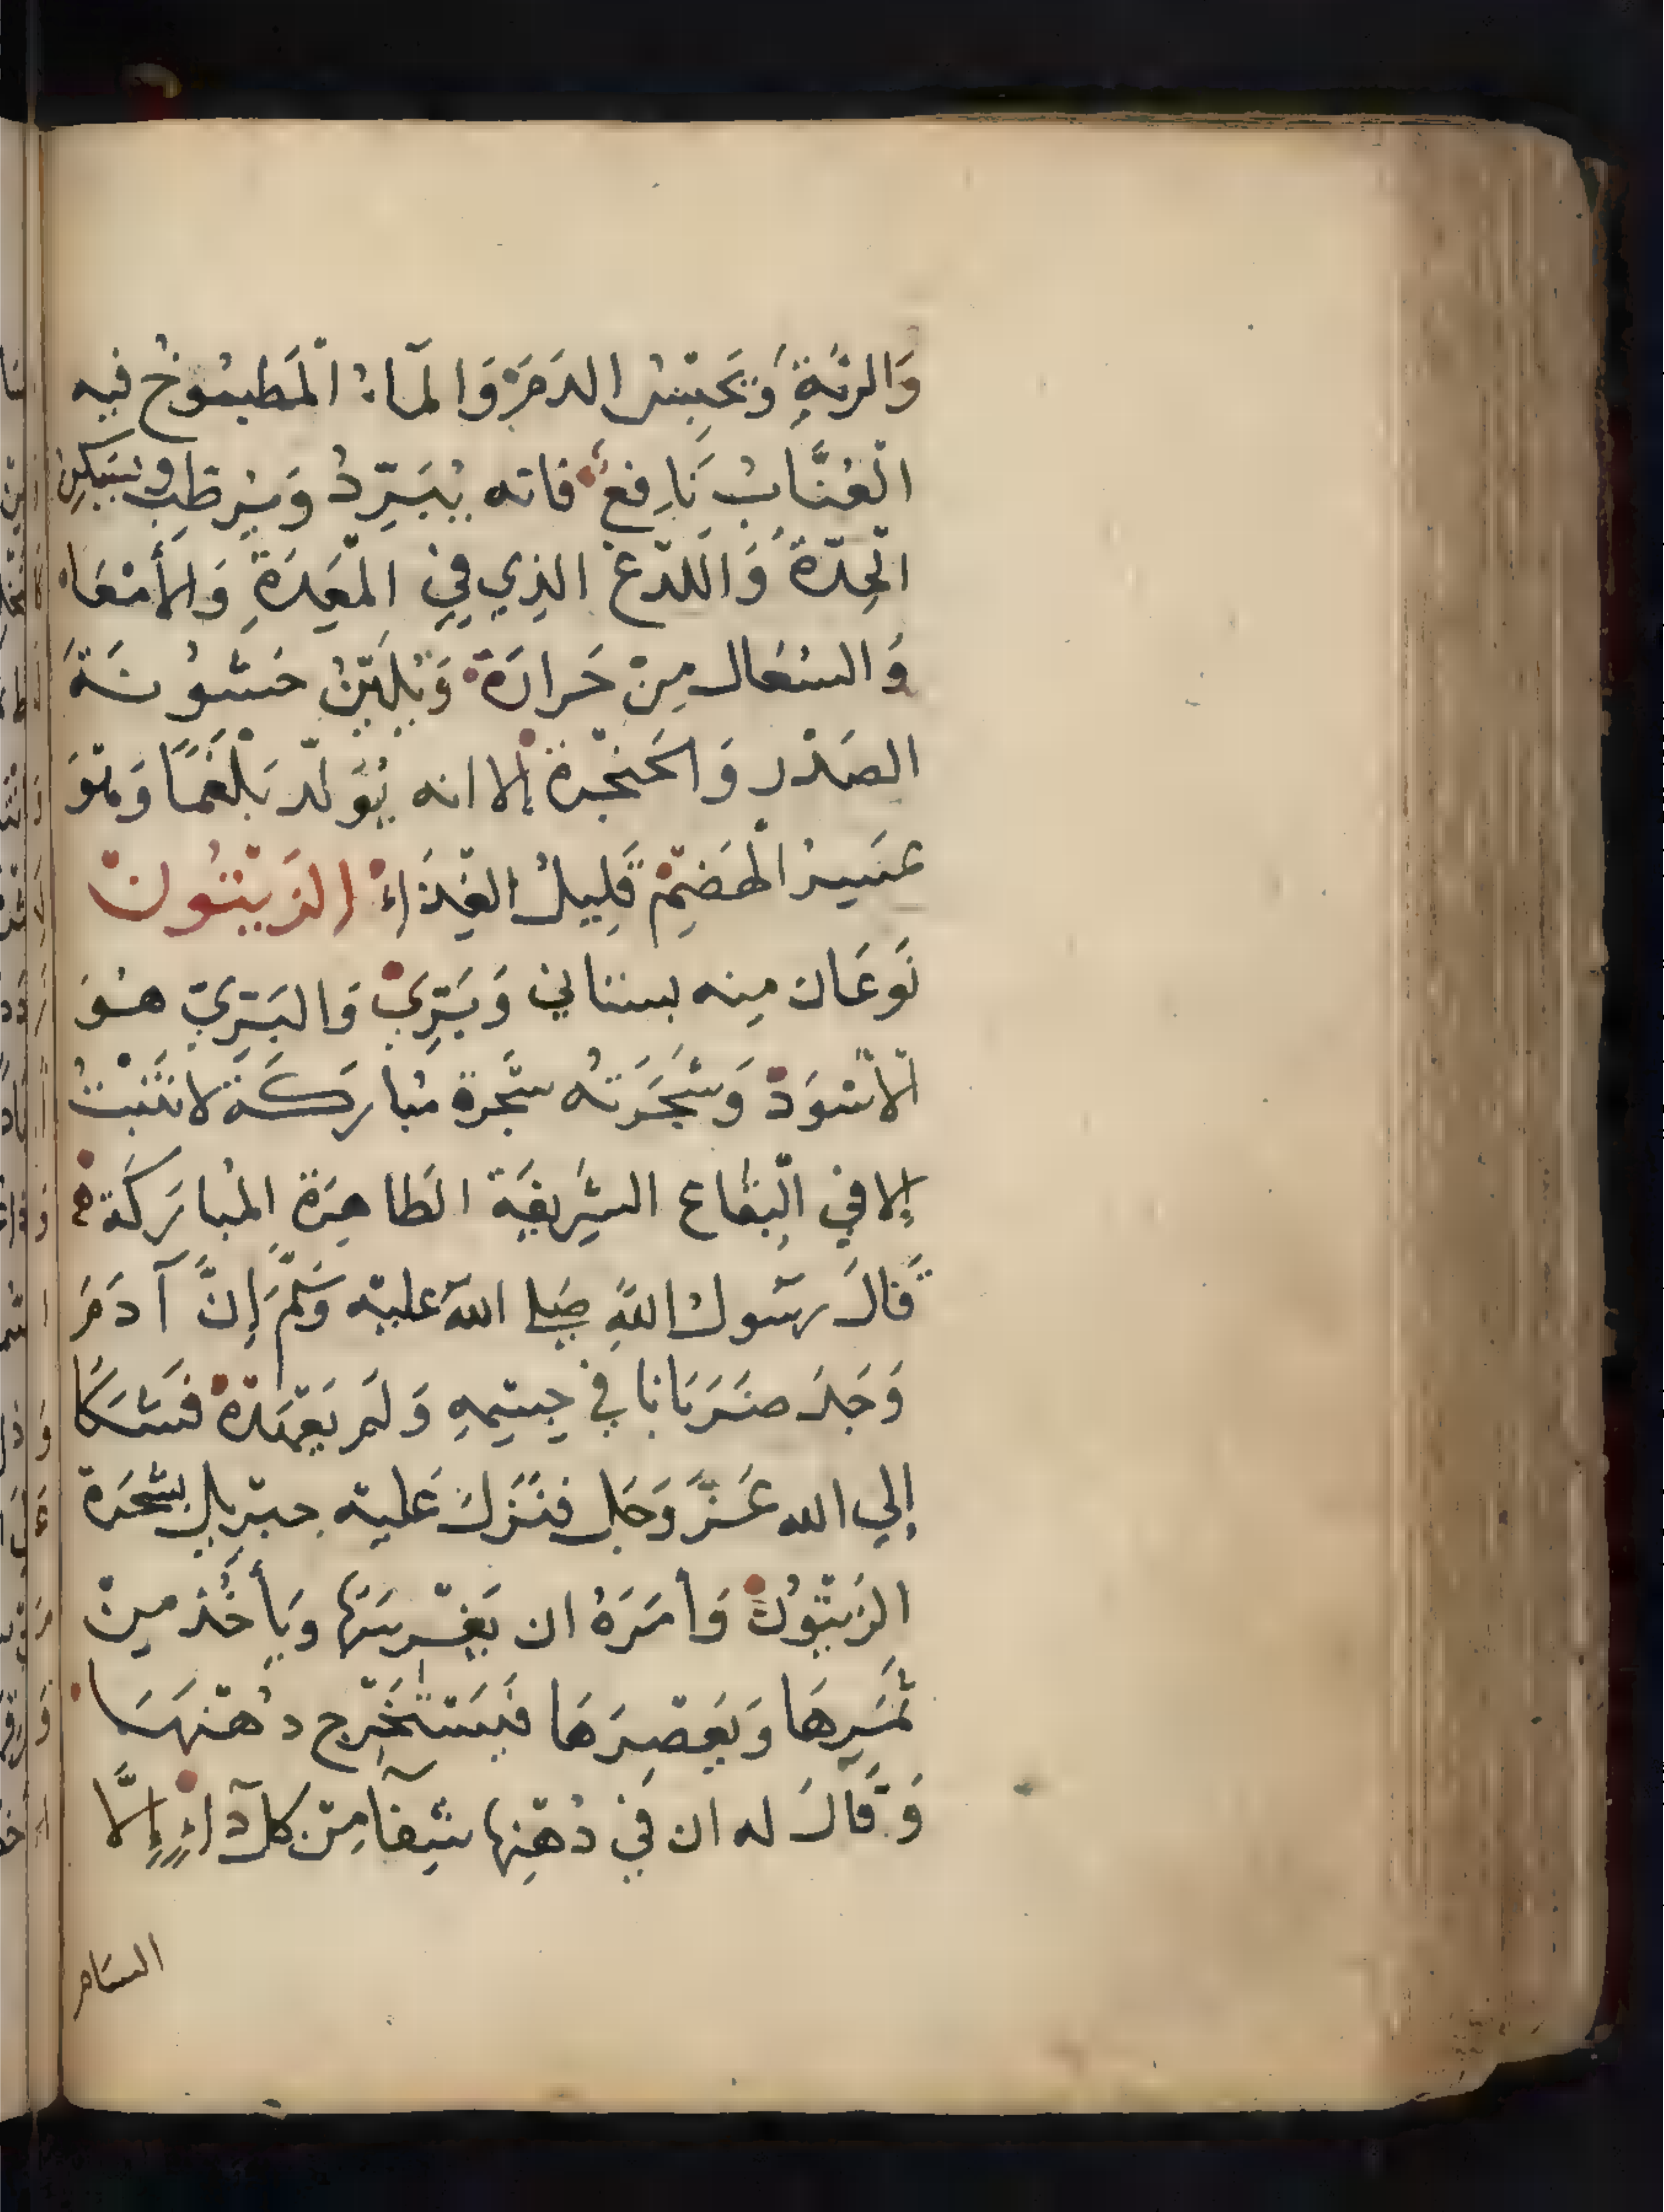 وَالرئةِ وَيَحبِسُ الدَمَ وَالمَاءُ الْمَطبُوخُ فيه
الْعُنَّابُ نَافِعٌ فانه يُبَرِّدُ وَيُرطِبُ ويُسَكِنُ
الْحِدّةَ وَاللدْغَ الذِي فِي الْمَعِدَةِ وَالأمْعَاء
وَالسُعَال مِنْ حَرارَة وَيُلَيّنُ خشُونَةَ
الصَدْر وَالحَنجْرة إلا انه يُوَلّد بَلْغَمًا وَهْوَ
عَسِيرُ الْهَضْمِ قَلِيلُ الغِذَاءْ الزَيْتُونْ
نَوعَان مِنه بستاني وَبَرِّيْ وَالبَرِّيّ هُوَ
الأسْوَدْ وَشَجَرَتُه شَجَرة مُبارَكَة لا تَنْبُتُ
إلا فِي الْبِقَاع الشَرِيفَة الطَاهِرَة المُبارَكَة
قَالَ رسُول اللهِ صَلى الله عَليْه وَسَلَّمَ إنَّ آدَمَ
وَجَدَ ضَرَبَانا في جِسْمِهِ وَلَم يَعْهَدْهُ فَشَكَا
إلي الله عَزَّ وَجَل فنَزَلَ عَليْه جبْريل بشَجَرَة
الزَيْتُونْ وَأمَرَهُ ان يَغْرِسَهَا وَيَأخُذ مِنْ
ثَمَرِهَا وَيَعصِرَهَا فَيَسْتَخْرِج دُهْنَهَا
وَقَالَ له ان فِي دُهْنِها شِفآ مِنْ كل دآءٍ إلَّا
السَام